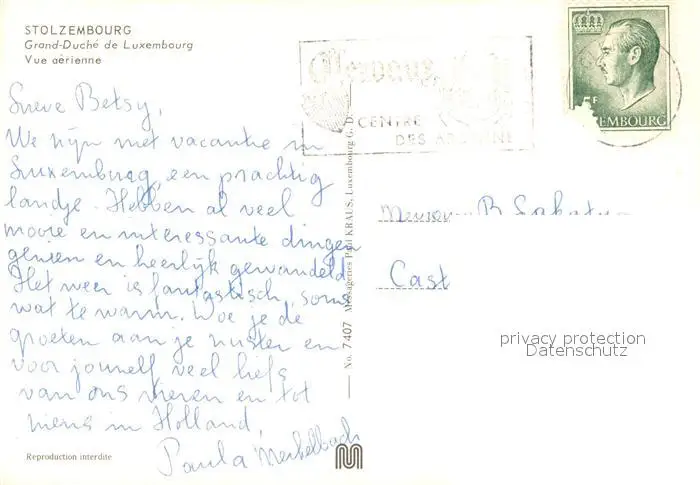 STOLZEMBOURG
Grand-Duché de Luxembourg
Vue aérienne
Lieve Betsy,
We zijn met vacantie in
Luxemburg, een prachtig
landje. Hebben al veel
mooie en interessante dingen
gezien en heerlijk gewandeld.
Het weer is fantastisch, soms
wat te warm. Doe je de
groeten aan je zuster en
voor jouzelf veel liefs
van ons vieren en tot
ziens in Holland,
Paula Merkelbach
Reproduction interdite
No. 7407 Messageries Paul KRAUS, Luxembourg G. D.
Clervaux
CENTRE
DES ARDENNE
5F
EMBOURG
Mevrouw B.
Cast
privacy protection
Datenschutz